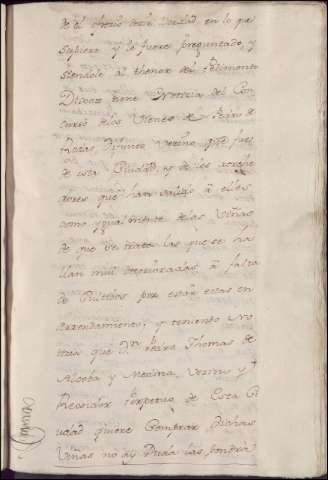 de el ofrezio dezir Verdad en lo que
supiere y le fuere preguntado, y
siendole al thenor del Pedimento
Dijo: tiene Notizia del Con
curso de los Vienes de Pedro de
Rojas Vezino que fue
de esta Ciudad, y de los acrehe
dores que han salido a ellos
como ygualmente de las Viñas
de que se trata las que se ha
llan mui deterioradas, a falta
de por estar estas en
Arrendamiento, y teniendo No
tizia que Dn Pedro Thomas de
Alzeba y Medina, Vezino y
Rexidor Perpetuo de Esta Ci
udad quiere Comprar, dichas
Viñas no ay Duda las pondra